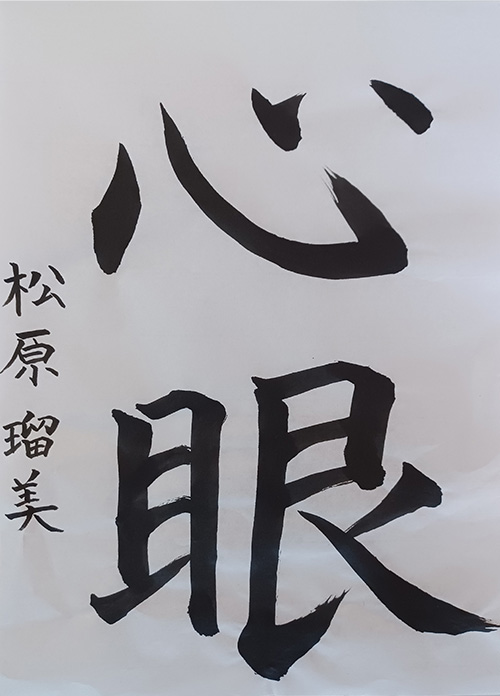 心眼
松原瑠美